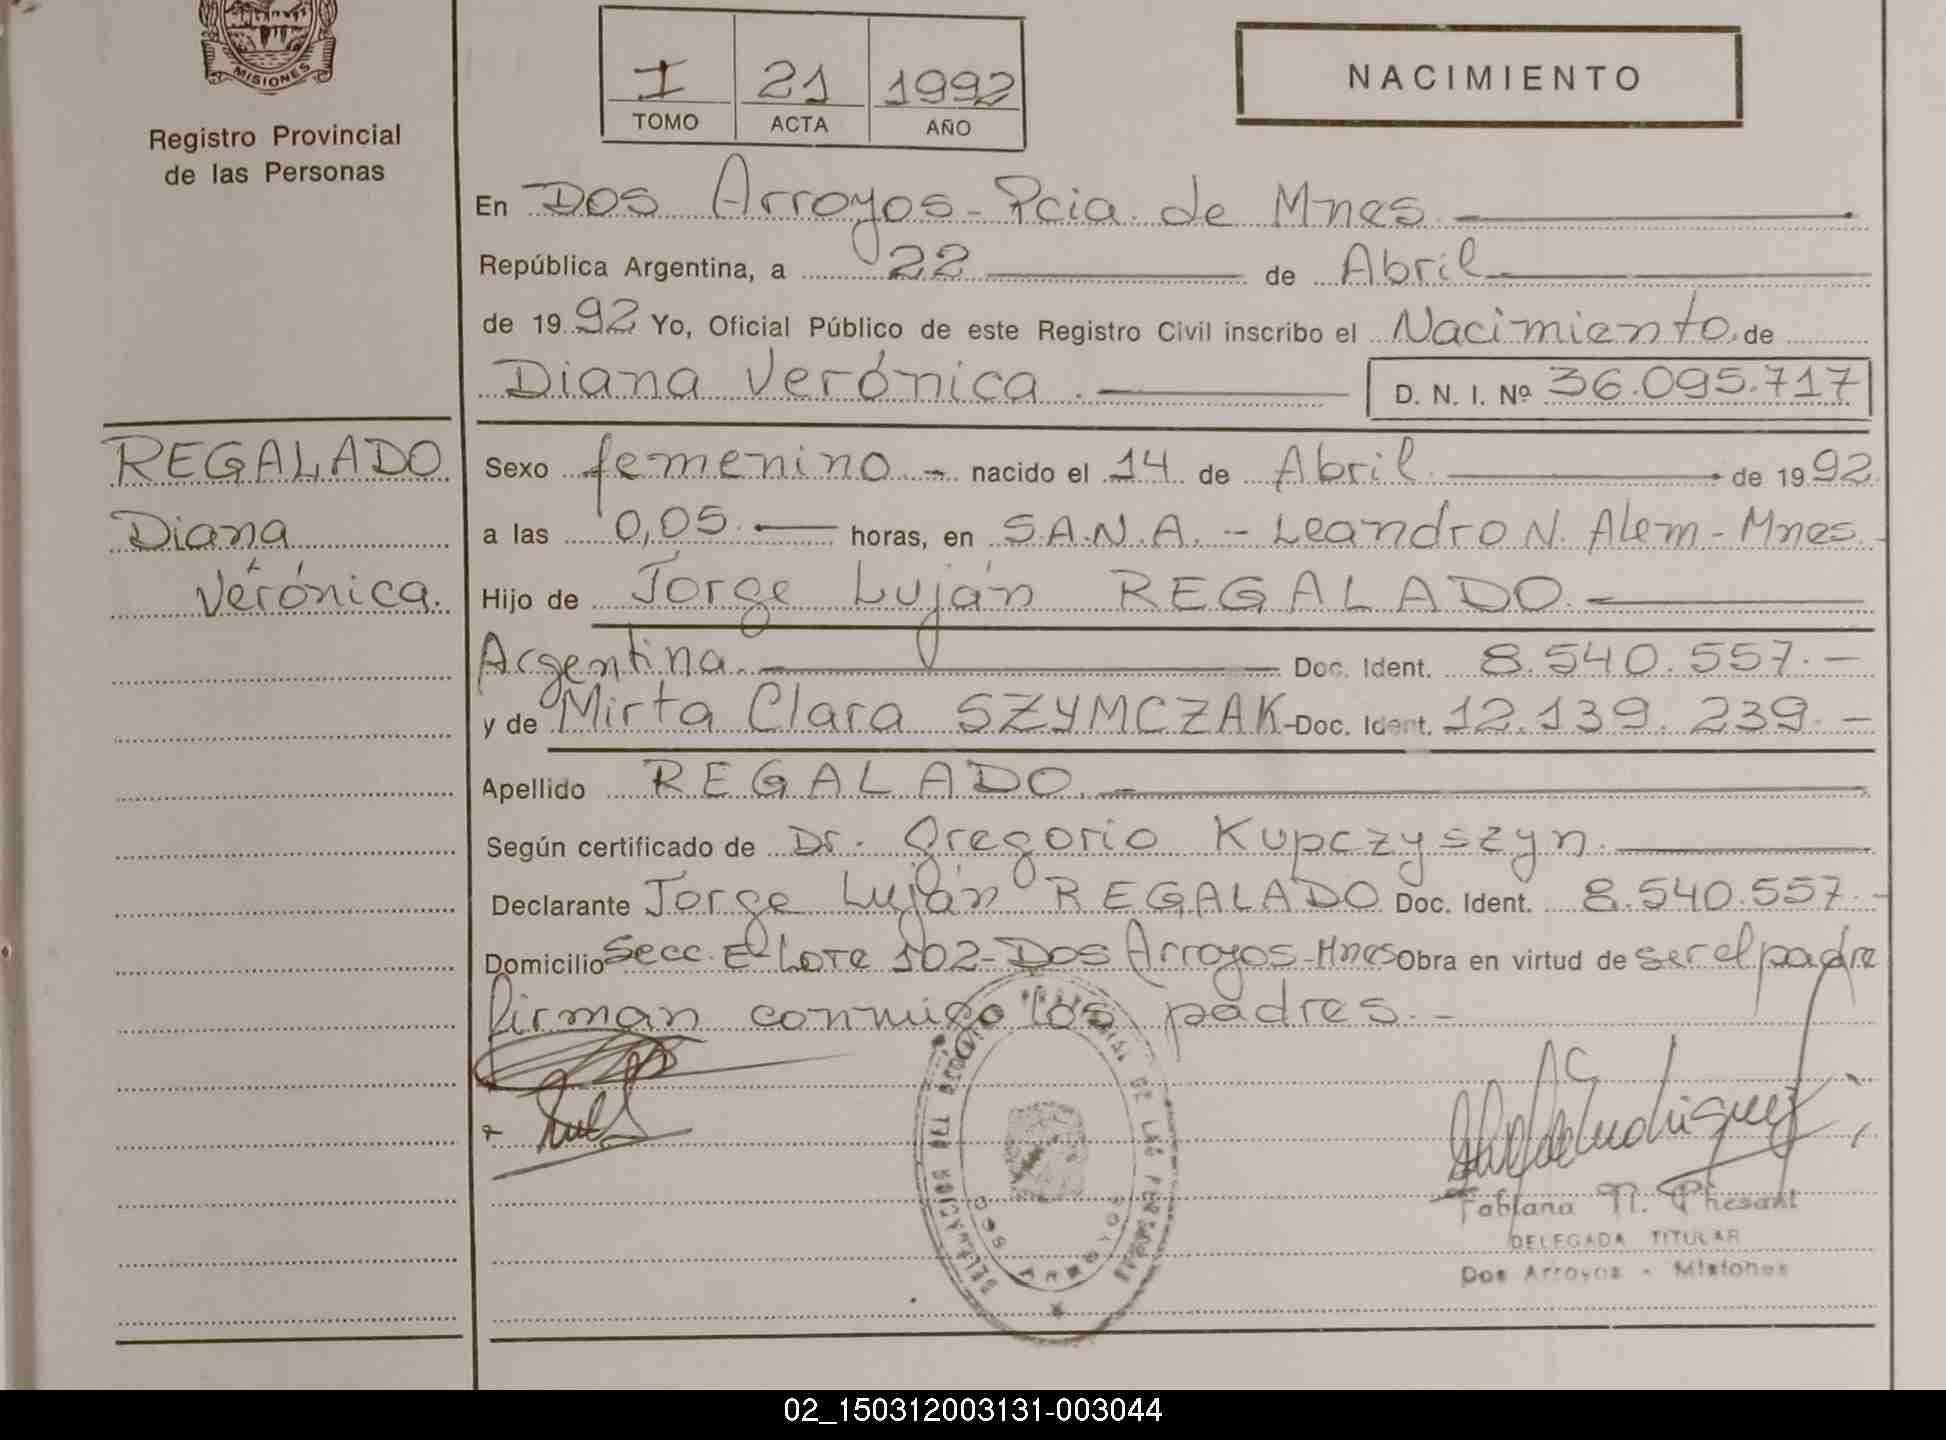 MISIONES
Registro Provincial
de las Personas
I 21 1992
TOMO ACTA AÑO
NACIMIENTO
En Dos Arroyos - Pcia. de Mnes
República Argentina, a 22 de Abril
de 1992 Yo, Oficial Público de este Registro Civil inscribo el Nacimiento de
Diana Verónica. D. N. I. Nº 36.095.717
REGALADO
Diana
Verónica.
Sexo femenino.- nacido el 14 de Abril de 1992
a las 0,05 horas, en S.A.N.A. - Leandro N. Alem - Mnes.
Hijo de Jorge Luján REGALADO.-
Argentina. Doc. Ident. 8.540.557.-
y de Mirta Clara SZYMCZAK - Doc. Ident. 12.139.239.-
Apellido REGALADO.-
Según certificado de Dr. Gregorio Kupczyszyn.
Declarante Jorge Luján REGALADO Doc. Ident. 8.540.557.-
Domicilio Secc. E Lote 102 - Dos Arroyos - Mnes Obra en virtud de ser el padre
firman conmigo los padres.-
DELEGACION DEL REGISTRO PROVINCIAL DE LAS PERSONAS
DOS ARROYOS
Fabiana N. Phesant
DELEGADA TITULAR
Dos Arroyos - Misiones
02_150312003131-003044